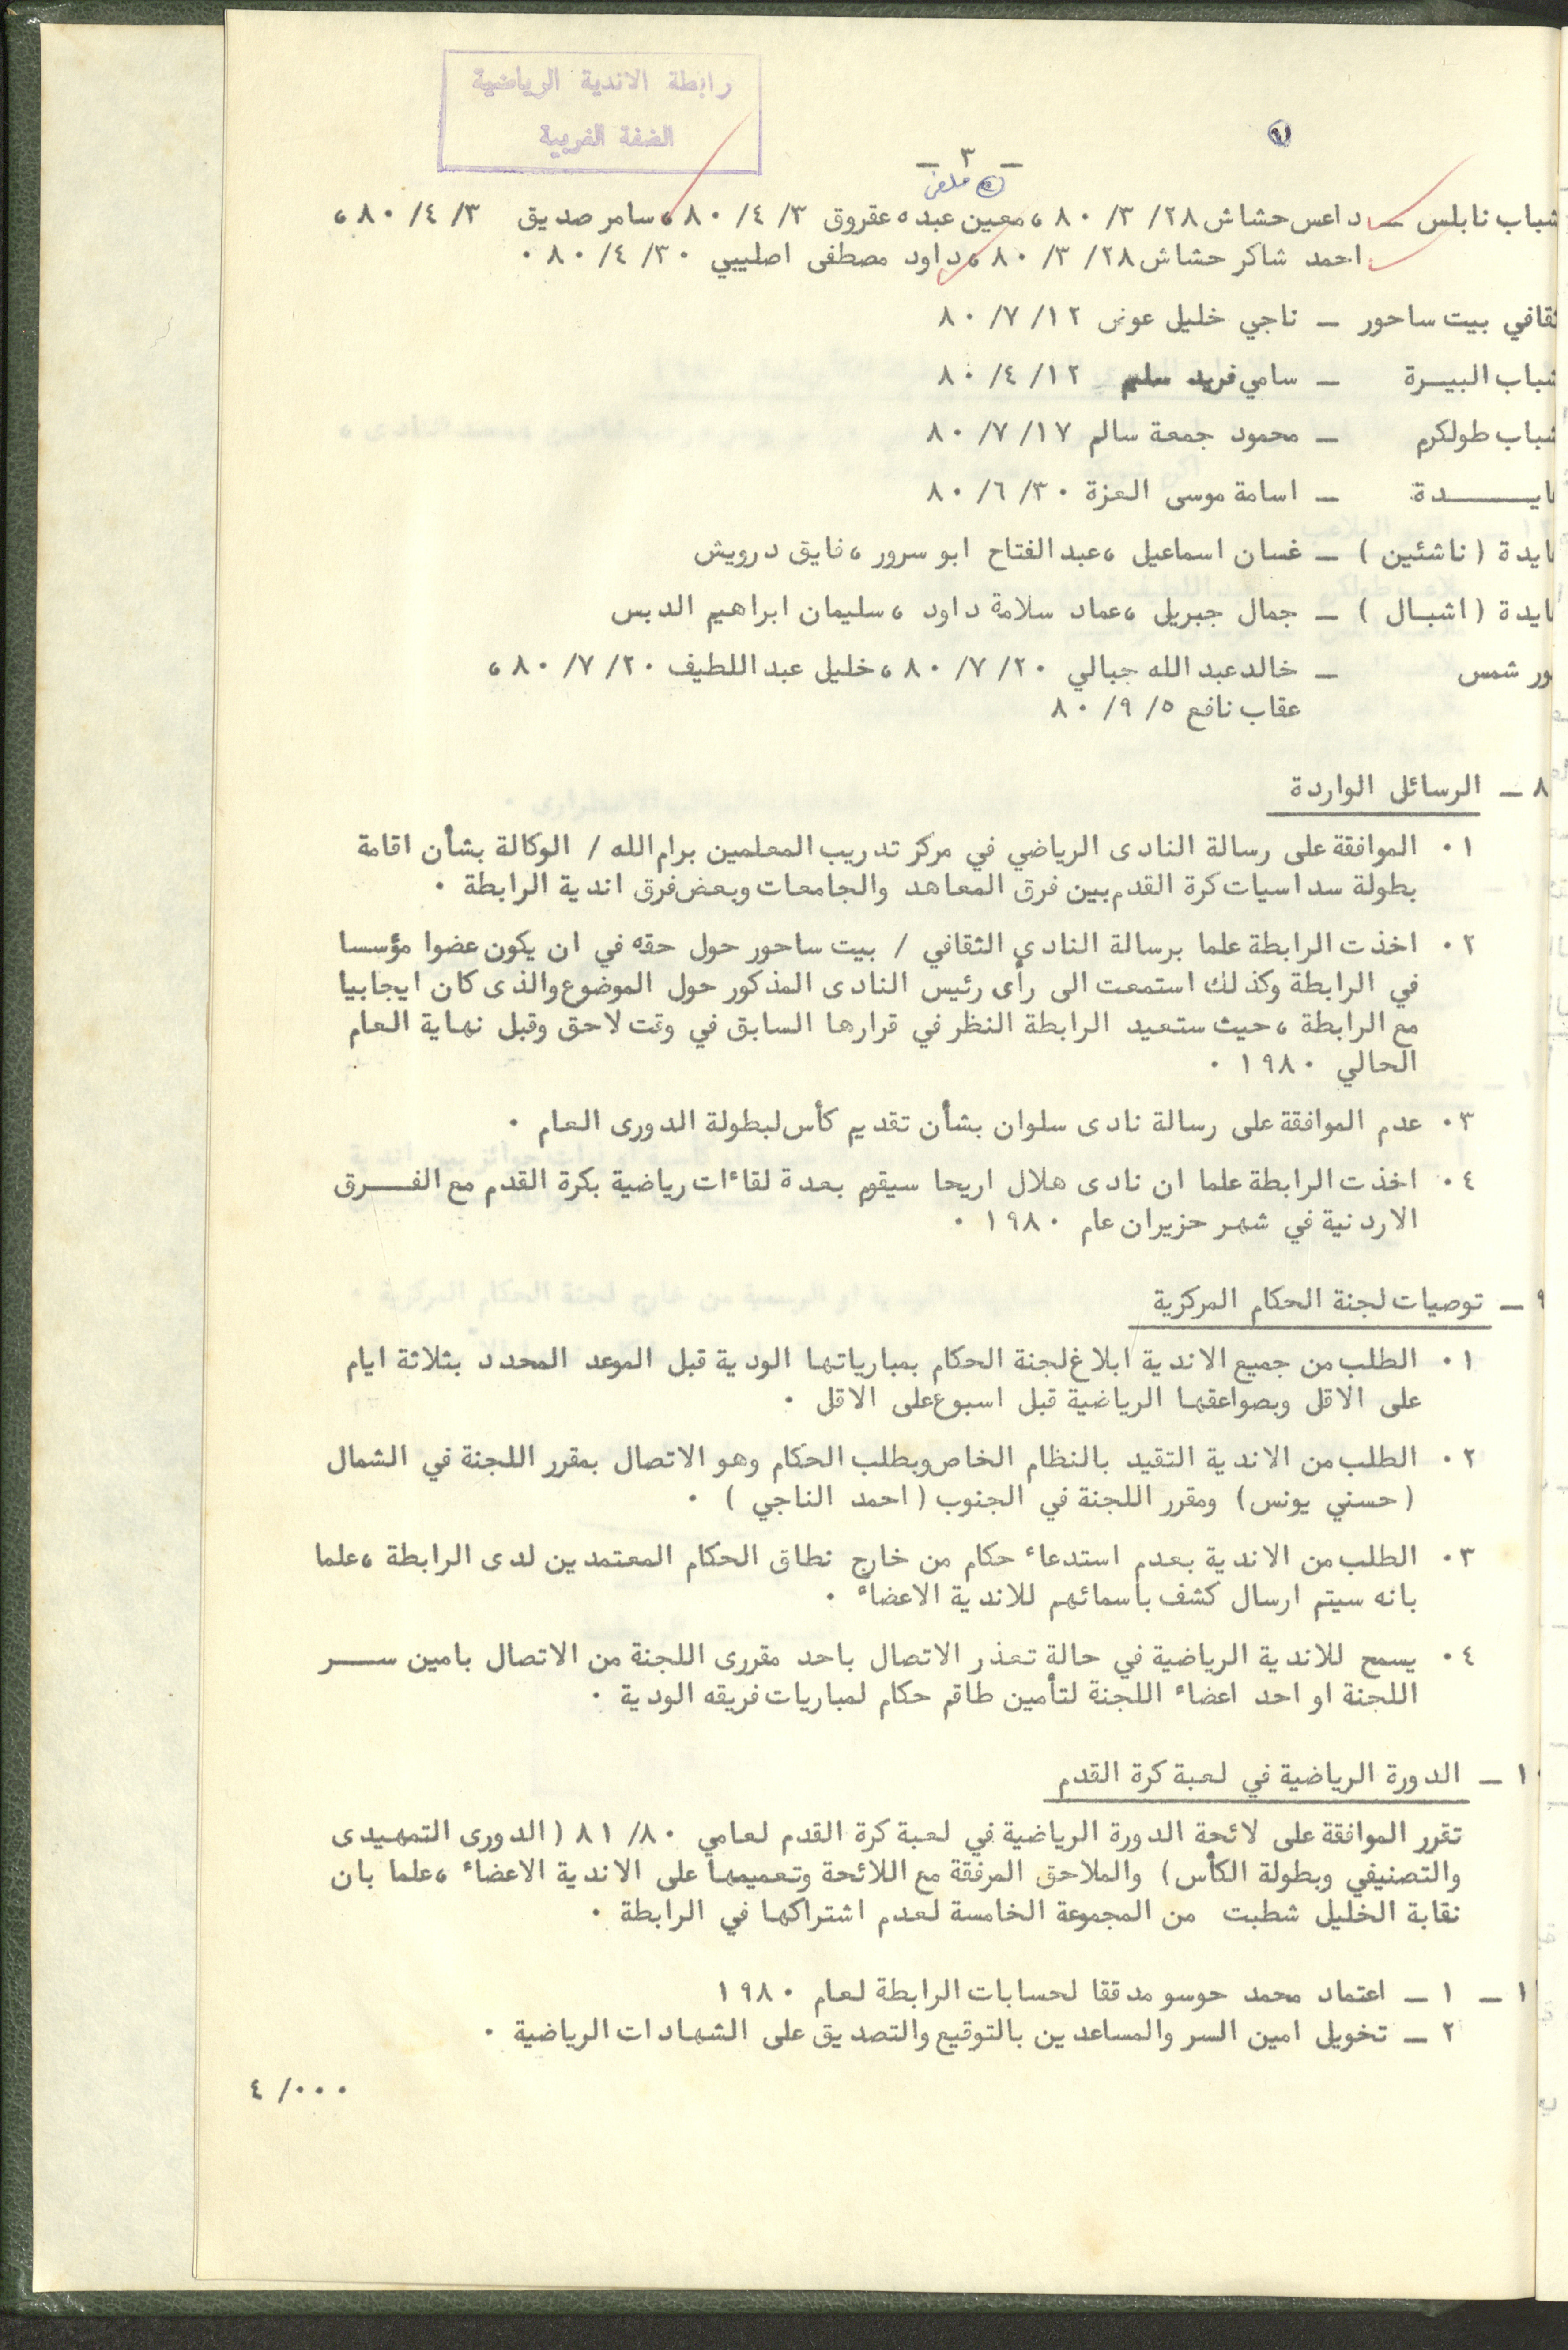 رابطة الاندية الرياضية
الضفة الغربية
- ٣ -
شباب نابلس - داعس حشاش ٢٨/ ٣/ ٨٠ ، معين عبده عقروق ٣/ ٤/ ٨٠ ، سامر صديق ٣/ ٤/ ٨٠ ،
احمد شاكر حشاش ٢٨/ ٣/ ٨٠ ، داود مصطفى اصليبي ٣٠/ ٤/ ٨٠ .
ثقافي بيت ساحور - ناجي خليل عوض ١٢/ ٧/ ٨٠
شباب البيــرة - سامي فريد سليم ١٢/ ٤/ ٨٠
شباب طولكرم - محمود جمعة سالم ١٧/ ٧/ ٨٠
ايـــــدة - اسامة موسى العزة ٣٠/ ٦/ ٨٠
ايدة ( ناشئين ) - غسان اسماعيل ، عبد الفتاح ابو سرور ، فايق درويش
ايدة ( اشبـال ) - جمال جبريل ، عماد سلامة داود ، سليمان ابراهيم الدبس
ور شمس - خالد عبد الله جبالي ٢٠/ ٧/ ٨٠ ، خليل عبد اللطيف ٢٠/ ٧/ ٨٠ ،
عقاب نافع ٥/ ٩/ ٨٠
٨ - الرسائل الواردة
١ . الموافقة على رسالة النادى الرياضي في مركز تدريب المعلمين برام الله / الوكالة بشأن اقامة
بطولة سداسيات كرة القدم بين فرق المعاهد والجامعات وبعض فرق اندية الرابطة .
٢ . اخذت الرابطة علما برسالة النادي الثقافي / بيت ساحور حول حقه في ان يكون عضوا مؤسسا
في الرابطة وكذلك استمعت الى رأى رئيس النادى المذكور حول الموضوع والذى كان ايجابيا
مع الرابطة ، حيث ستعيد الرابطة النظر في قرارها السابق في وقت لاحق وقبل نهاية العام
الحالي ١٩٨٠ .
٣ . عدم الموافقة على رسالة نادى سلوان بشأن تقديم كأس لبطولة الدورى العام .
٤ . اخذت الرابطة علما ان نادى هلال اريحا سيقوم بعدة لقاءات رياضية بكرة القدم مع الفــرق
الاردنية في شهر حزيران عام ١٩٨٠ .
٩ - توصيات لجنة الحكام المركزية
١ . الطلب من جميع الاندية ابلاغ لجنة الحكام بمبارياتها الودية قبل الموعد المحدد بثلاثة ايام
على الاقل وبصواعقها الرياضية قبل اسبوع على الاقل .
٢ . الطلب من الاندية التقيد بالنظام الخاص وبطلب الحكام وهو الاتصال بمقرر اللجنة في الشمال
( حسني يونس ) ومقرر اللجنة في الجنوب ( احمد الناجي ) .
٣ . الطلب من الاندية بعدم استدعاء حكام من خارج نطاق الحكام المعتمدين لدى الرابطة ، علما
بانه سيتم ارسال كشف باسمائهم للاندية الاعضاء .
٤ . يسمح للاندية الرياضية في حالة تعذر الاتصال باحد مقررى اللجنة من الاتصال بامين ســـر
اللجنة او احد اعضاء اللجنة لتأمين طاقم حكام لمباريات فريقه الودية .
١٠ - الدورة الرياضية في لعبة كرة القدم
تقرر الموافقة على لائحة الدورة الرياضية في لعبة كرة القدم لعامي ٨٠/ ٨١ ( الدورى التمهيدى
والتصنيفي وبطولة الكأس ) والملاحق المرفقة مع اللائحة وتعميمها على الاندية الاعضاء ، علما بان
نقابة الخليل شطبت من المجموعة الخامسة لعدم اشتراكها في الرابطة .
١ - ١ - اعتماد محمد حوسو مدققا لحسابات الرابطة لعام ١٩٨٠
٢ - تخويل امين السر والمساعدين بالتوقيع والتصديق على الشهادات الرياضية .
٤ /٠٠٠